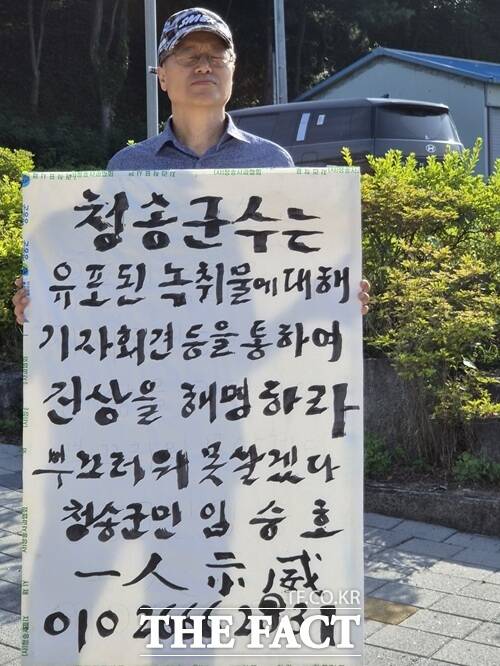 (사)청송사과협회
청송군수는
유포된 녹취물에 대해
기자회견 등을 통하여
진상을 해명하라
부끄러워 못살겠다
청송군민 임승호
一人示威
010
TF.CO.KR
THE FACT